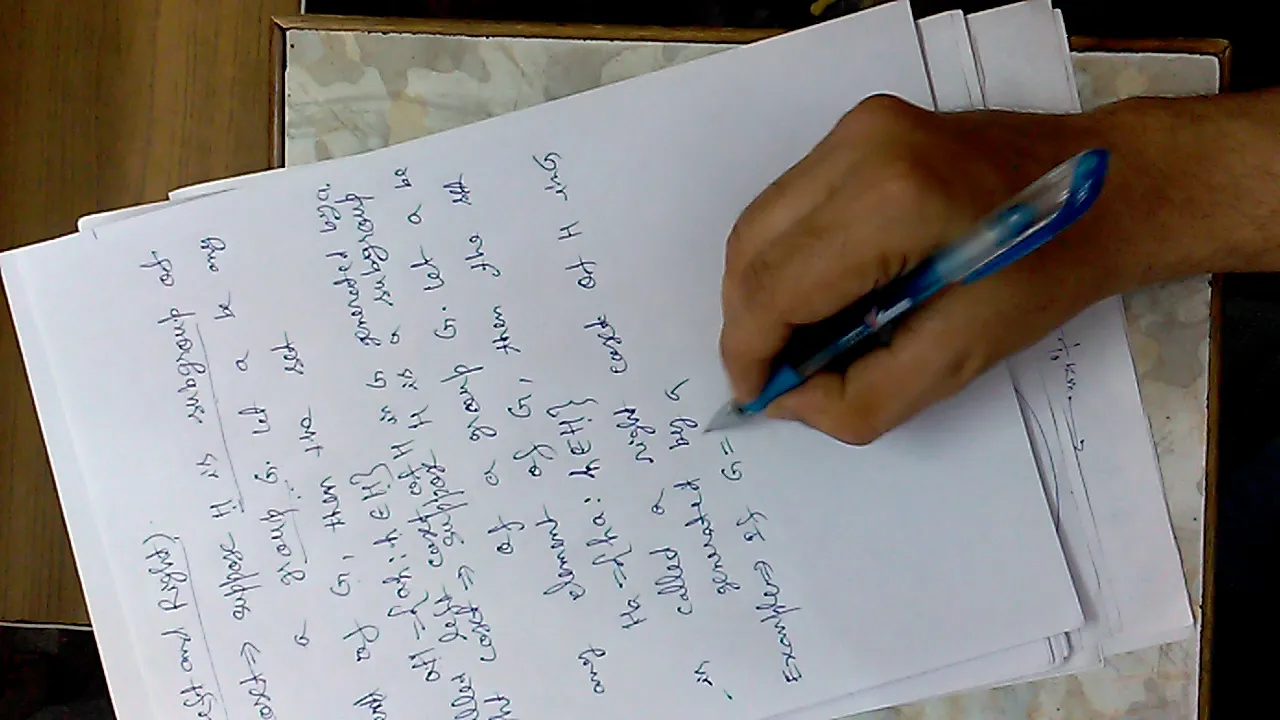 eft and Right)
oset⇒ suppose H is subgroup of
a group G. Let a be any
of G, then the set
aH = {ah : h∈H} is G generated by a.
called left coset of H
coset ⇒ suppose H is a subgroup
of a group G. Let a be
any element of G, then the set
Ha = {ha : h∈H}
is called a right coset of H in G
generated by a
Example⇒ If G =
1/10 km